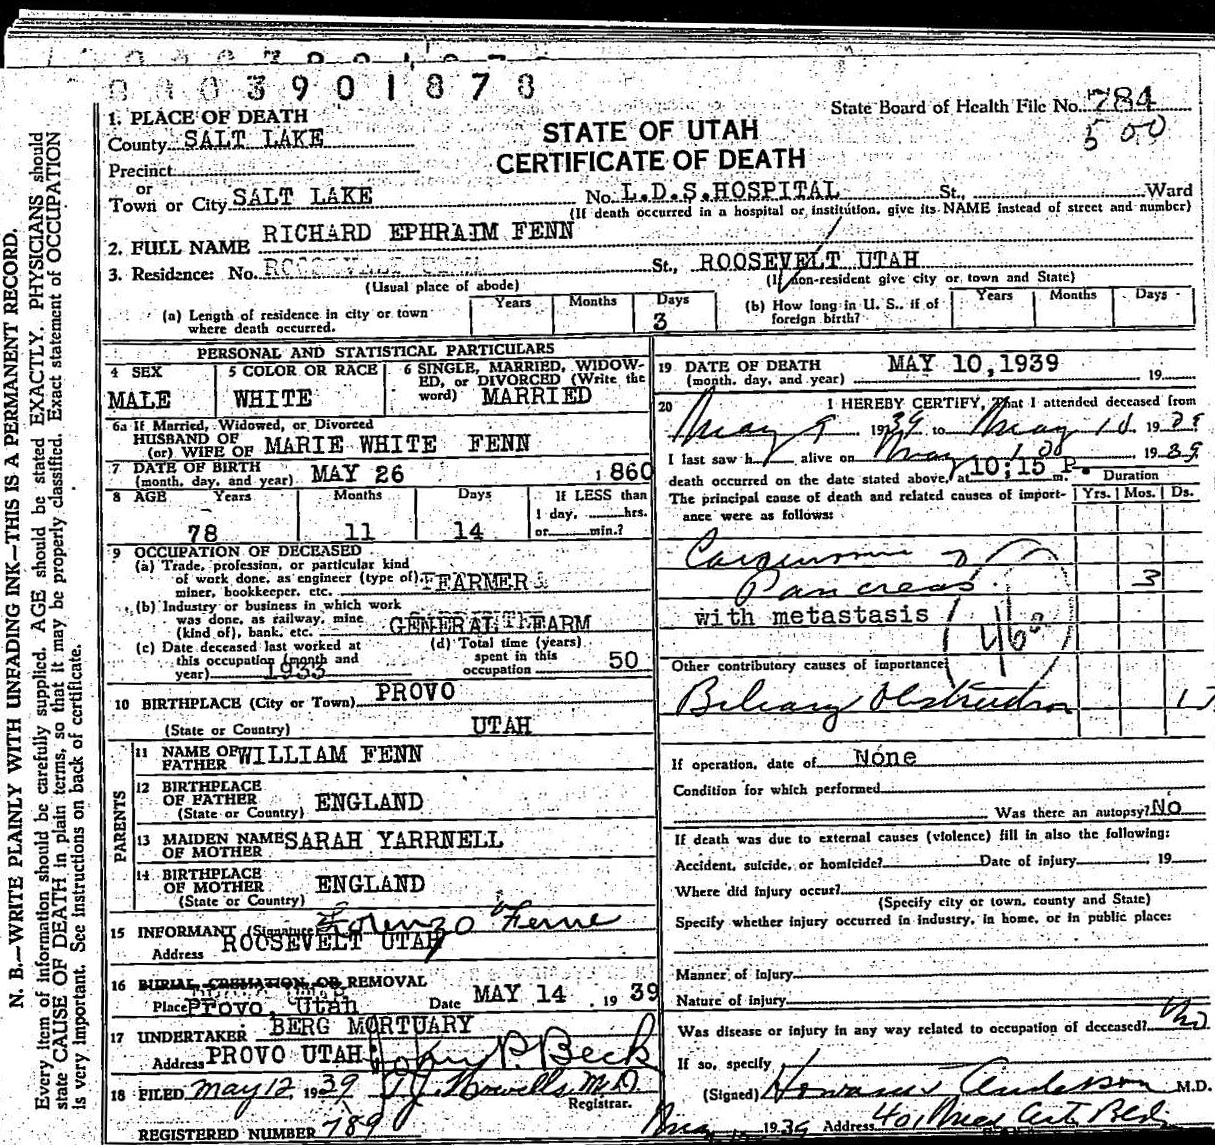 0003901878
State Board of Health File No. 784
500
STATE OF UTAH
CERTIFICATE OF DEATH
1. PLACE OF DEATH
County SALT LAKE
Precinct
or
Town or City SALT LAKE No. L.D.S.HOSPITAL St., Ward
(If death occurred in a hospital or institution, give its NAME instead of street and number)
2. FULL NAME RICHARD EPHRAIM FENN
3. Residence: No. St., ROOSEVELT UTAH
(Usual place of abode) (If non-resident give city or town and State)
(a) Length of residence in city or town where death occurred. Years Months Days 3
(b) How long in U. S., if of foreign birth? Years Months Days
PERSONAL AND STATISTICAL PARTICULARS
4 SEX MALE
5 COLOR OR RACE WHITE
6 SINGLE, MARRIED, WIDOW-
ED, or DIVORCED (Write the
word) MARRIED
6a If Married, Widowed, or Divorced
HUSBAND OF
(or) WIFE OF MARIE WHITE FENN
7 DATE OF BIRTH
(month, day, and year) MAY 26 1860
8 AGE Years Months Days If LESS than
1 day, hrs.
78 11 14 or min.?
9 OCCUPATION OF DECEASED
(a) Trade, profession, or particular kind
of work done, as engineer (type of), FARMER
miner, bookkeeper, etc.
(b) Industry or business in which work
was done, as railway, mine
(kind of), bank, etc. GENERAL FARM
(c) Date deceased last worked at
this occupation (month and
year) 1933
(d) Total time (years)
spent in this
occupation 50
10 BIRTHPLACE (City or Town) PROVO
(State or Country) UTAH
PARENTS
11 NAME OF
FATHER WILLIAM FENN
12 BIRTHPLACE
OF FATHER ENGLAND
(State or Country)
13 MAIDEN NAME
OF MOTHER SARAH YARRNELL
14 BIRTHPLACE
OF MOTHER ENGLAND
(State or Country)
15 INFORMANT (Signature) Lorenzo Fenne
Address ROOSEVELT UTAH
16 BURIAL, CREMATION, OR REMOVAL
Place Provo, Utah Date MAY 14, 1939
17 UNDERTAKER BERG MORTUARY
Address PROVO UTAH John P. Beck
18 FILED May 12, 1939 T.J. Howells M.D.
Registrar.
REGISTERED NUMBER 789
19 DATE OF DEATH
(month, day, and year) MAY 10,1939 19
20 I HEREBY CERTIFY, That I attended deceased from
May 9 1939 to May 10 1939
I last saw h alive on May 10 1939
death occurred on the date stated above, at 10:15 P. m. Duration
The principal cause of death and related causes of import-
ance were as follows: Yrs. Mos. Ds.
Carcinoma of
Pancreas. 3
with metastasis
46
Other contributory causes of importance:
Biliary Obstruction
If operation, date of None
Condition for which performed
Was there an autopsy? No
If death was due to external causes (violence) fill in also the following:
Accident, suicide, or homicide? Date of injury 19
Where did injury occur?
(Specify city or town, county and State)
Specify whether injury occurred in industry, in home, or in public place:
Manner of injury
Nature of injury
Was disease or injury in any way related to occupation of deceased? No
If so, specify
(Signed) Anderson M.D.
1939 Address 401 Med Arts Bldg
N. B.—WRITE PLAINLY WITH UNFADING INK—THIS IS A PERMANENT RECORD.
Every item of information should be carefully supplied. AGE should be stated EXACTLY. PHYSICIANS should
state CAUSE OF DEATH in plain terms, so that it may be properly classified. Exact statement of OCCUPATION
is very important. See instructions on back of certificate.